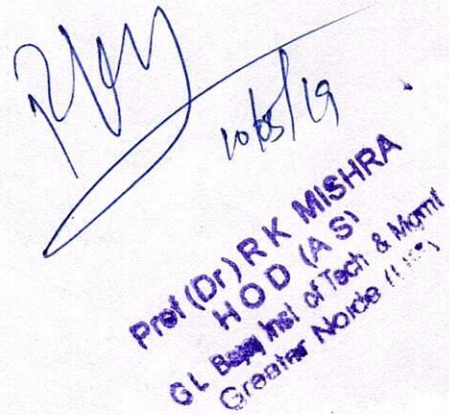 10/05/19
Prof (Dr) R K MISHRA
HOD (A S)
GL Bajaj Inst of Tech & Mgmt
Greater Noida